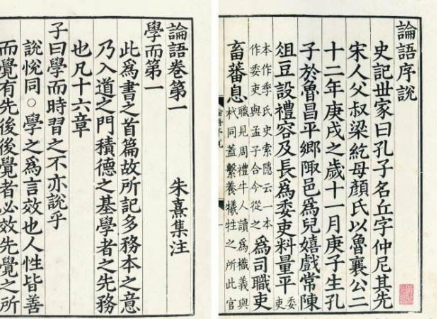 論語序說
史記世家曰孔子名丘字仲尼其先
宋人父叔梁紇母顏氏以魯襄公二
十二年庚戌之歲十一月庚子生孔
子於魯昌平鄉陬邑爲兒嬉戲常陳
俎豆設禮容及長爲委吏料量平委吏
本作季氏史索隱云一本作委吏與孟子合今從之爲司職吏
畜蕃息職見周禮牛人讀爲樴義與杙同蓋繫養犧牲之所此官
論語卷第一
朱熹集注
學而第一
此爲書之首篇故所記多務本之意
乃入道之門積德之基學者之先務
也凡十六章
子曰學而時習之不亦說乎
說悅同○學之爲言效也人性皆善
而覺有先後後覺者必效先覺之所